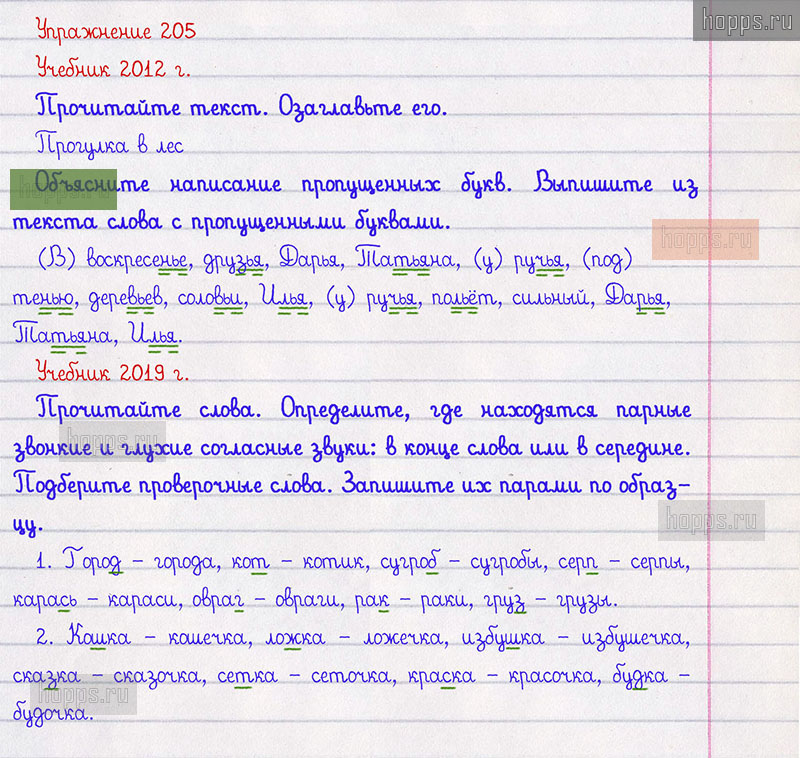 hopps.ru
Упражнение 205
Учебник 2012 г.
Прочитайте текст. Озаглавьте его.
Прогулка в лес
Объясните написание пропущенных букв. Выпишите из
hopps.ru
текста слова с пропущенными буквами.
hopps.ru
(В) воскресенье, друзья, Дарья, Татьяна, (у) ручья, (под)
тенью, деревьев, соловьи, Илья, (у) ручья, польёт, сильный, Дарья,
Татьяна, Илья.
Учебник 2019 г.
Прочитайте слова. Определите, где находятся парные
звонкие и глухие согласные звуки: в конце слова или в середине.
hopps.ru
Подберите проверочные слова. Запишите их парами по образ-
цу.
hopps.ru
1. Город – города, кот – котик, сугроб – сугробы, серп – серпы,
карась – караси, овраг – овраги, рак – раки, груз – грузы.
2. Кошка – кошечка, ложка – ложечка, избушка – избушечка,
сказка – сказочка, сетка – сеточка, краска – красочка, будка –
hopps.ru
будочка.